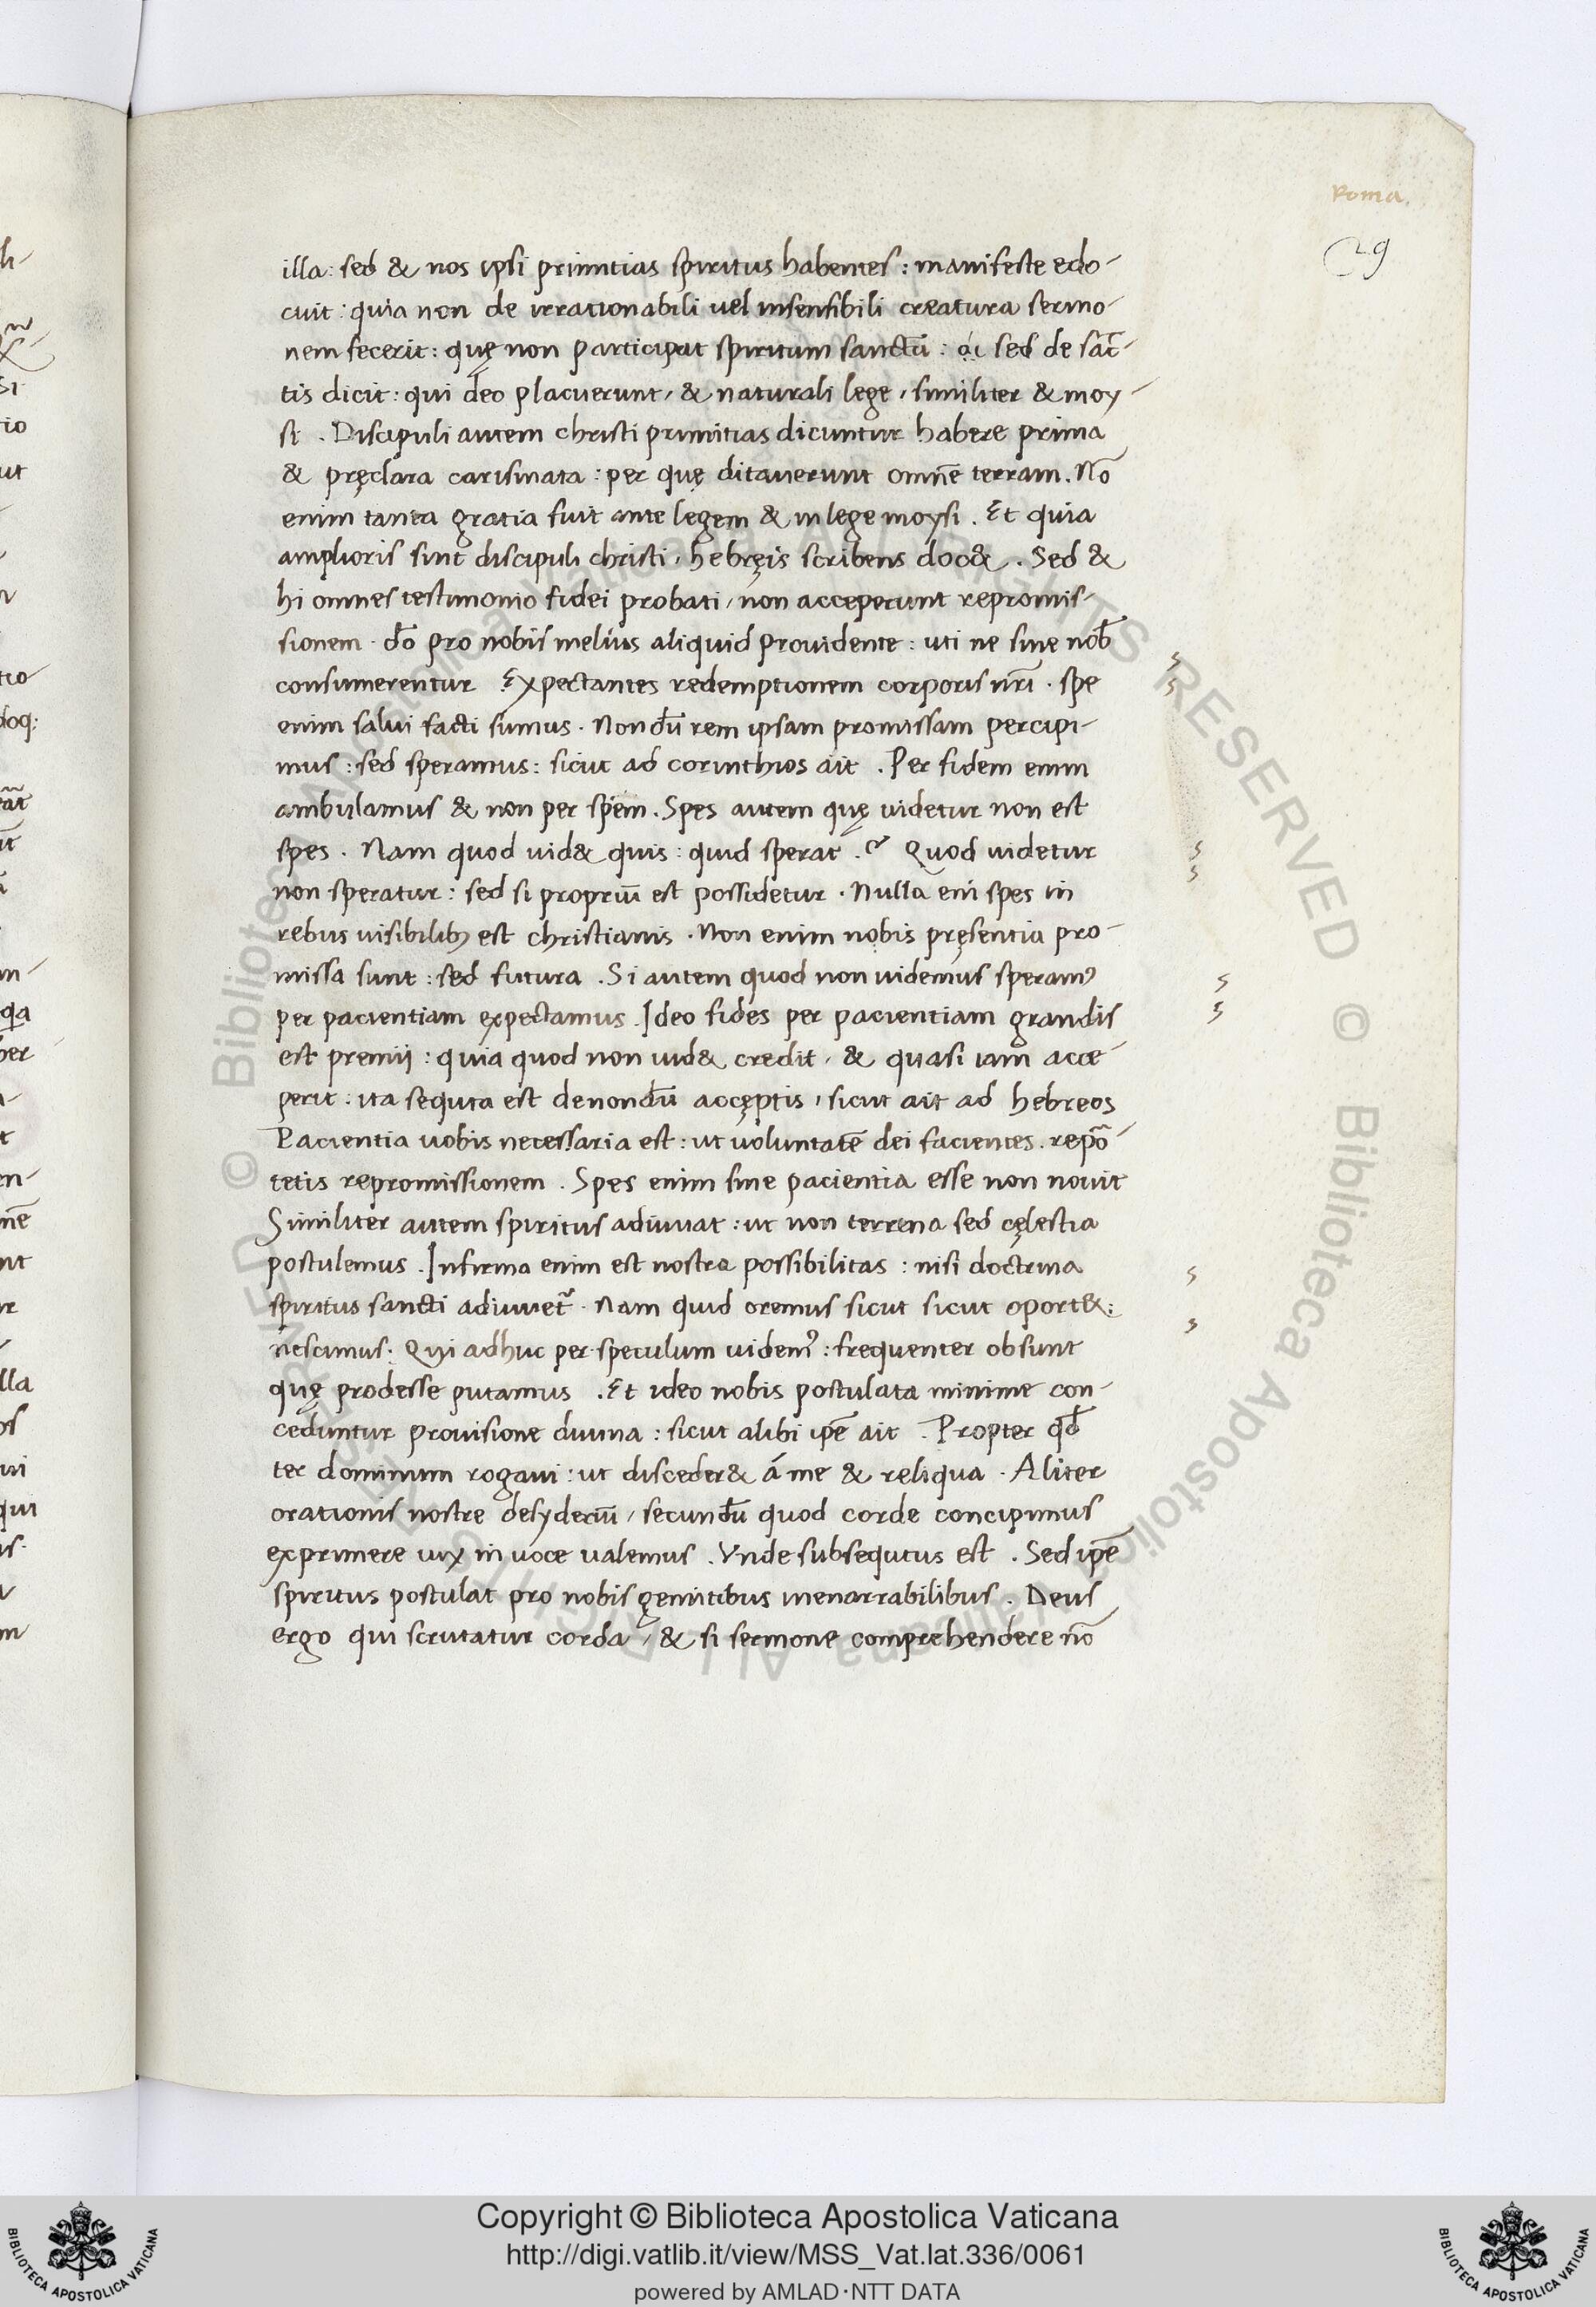 Roma.
29
illa: sed & nos ipsi primitias spiritus habentes: manifeste edo-
cuit: quia non de irrationabili uel insensibili creatura sermo-
nem fecerit: quę non participat spiritum sanctū: sed de sāc-
tis dicit: qui deo placuerunt, & naturali lege, similiter & moy-
si. Discipuli autem christi primitias dicuntur habere prima
& pręclara carismata: per quę ditauerunt omnē terram. Nō
enim tanta gratia fuit ante legem & in lege moysi. Et quia
amplioris sint discipuli christi, hebręis scribens doc&. Sed &
hi omnes testimonio fidei probati, non acceperunt repromis-
sionem. dō pro nobis melius aliquid prouidente: uti ne sine nob̄
consumerentur Expectantes redemptionem corporis nr̄i. spe
enim salui facti sumus. Nondū rem ipsam promissam percipi-
mus: sed speramus: sicut ad corinthios ait. Per fidem enim
ambulamus & non per spem. Spes autem quę uidetur non est
spes. Nam quod uid& quis: quid sperat. Quod uidetur
non speratur: sed si propriū est possidetur. Nulla eni spes in
rebus uisibilibꝫ est christianis. Non enim nobis pręsentia pro-
missa sunt: sed futura. Si autem quod non uidemus speramꝰ
per pacientiam expectamus. Ideo fides per pacientiam grandis
est premij: quia quod non uid& credit, & quasi iam acce-
perit: ita sequta est de nondū accęptis, sicut ait ad hebreos
Pacientia uobis necessaria est: ut uoluntatē dei facientes. repō-
tetis repromissionem. Spes enim sine pacientia esse non nouit
Similiter autem spiritus adiuuat: ut non terrena sed cęlestia
postulemus. Infirma enim est nostra possibilitas: nisi doctrina
spiritus sancti adiuuet᷑. Nam quid oremus sicut sicut oport&:
nescimus. Qui adhuc per speculum uidemꝰ: frequenter obsunt
quę prodesse putamus. Et ideo nobis postulata minime con-
ceduntur prouisione diuina: sicut alibi ipē ait. Propter qd̄
ter dominum rogaui: ut disceder& á me & reliqua. Aliter
orationis nostre desyderiū, secundū quod corde concipimus
exprimere uix in uoce ualemus. Vnde subsequtus est. Sed ipē
spiritus postulat pro nobis gemitibus inenarrabilibus. Deus
ergo qui scrutatur corda, & si sermone comprehendere nō
© Biblioteca Apostolica Vaticana ALL RIGHTS RESERVED
Copyright © Biblioteca Apostolica Vaticana
http://digi.vatlib.it/view/MSS_Vat.lat.336/0061
powered by AMLAD·NTT DATA
BIBLIOTECA APOSTOLICA VATICANA
BIBLIOTECA APOSTOLICA VATICANA